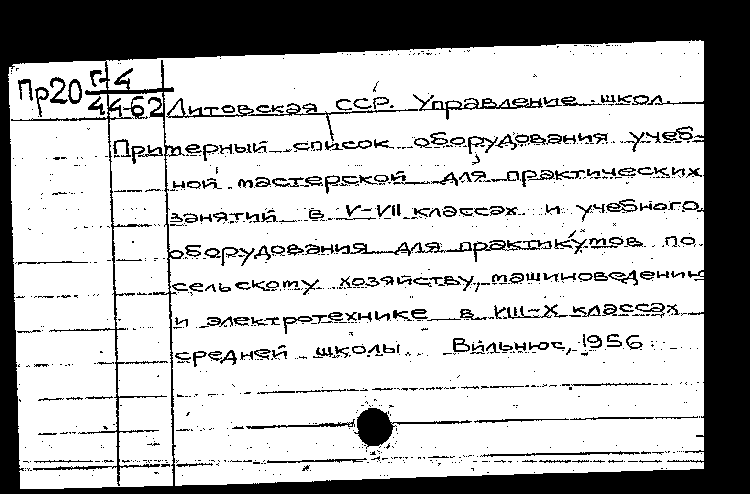 Пр20 Г-4
44-62 Литовская ССР. Управление школ.
Примерный список оборудования учеб-
ной мастерской для практических
занятий в V-VII классах и учебного
оборудования для практикумов по
сельскому хозяйству, машиноведению
и электротехнике в VIII-X классах
средней школы. Вильнюс, 1956